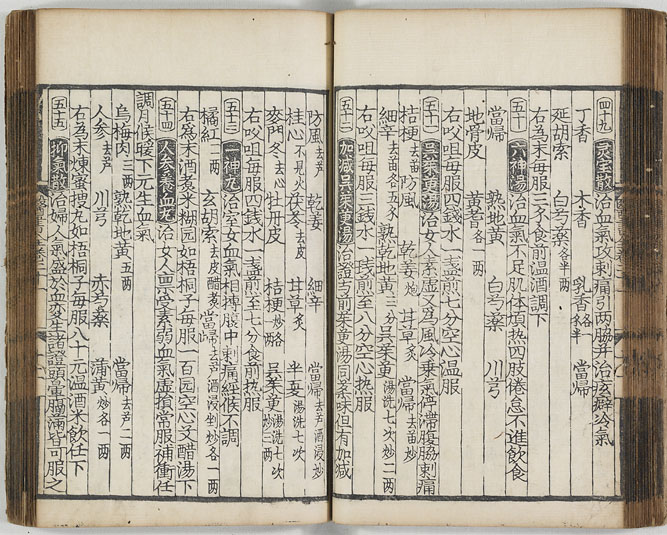 四十九 灵宝散 治血氣攻刺痛引两脇并治痃癖冷氣
丁香 木香 乳香各半 當歸
延胡索 白芍藥各半两
右為末毎服三錢食前温酒調下
五十 六神湯 治血氣不足肌体煩热四肢倦怠不進飲食
當歸 熟地黄 白芍藥 川芎
地骨皮 黄耆各一两
右㕮咀毎服四錢水一盞煎七分空心温服
五十一 吳茱萸湯 治女人素虚又為風冷乗氣停滯腹脇刺痛
桔梗去苗 防風 乾姜炒 甘草炙 當歸去苗炒
細辛去苗各五分 熟乾地黄三分 吳茱萸湯洗七次炒二两
右㕮咀毎服三錢水一盞煎至八分空心热服
五十二 加减吳茱萸湯 治證与前茱萸湯同藥味但有加减
防風去芦 乾姜 細辛 當歸去芦酒浸炒
桂心不見火 茯苓去皮 甘草炙 半夏湯洗七次
麥門冬去心 牡丹皮 桔梗炒各两 吳茱萸湯洗七次炒三两
右㕮咀毎服四錢水一盞煎至七分食前热服
五十三 一神丸 治室女血氣相搏腹中刺痛經候不調
橘紅一两 玄胡索去皮醋煮 當歸去芦酒浸剉炒各一两
右為末酒煮米糊圆如梧桐子毎服一百圆空心艾醋湯下
五十四 人参养血丸 治女人禀受素弱血氣虚損常服補衝任
調月候暖下元生血氣
烏梅肉三两 熟乾地黄五两 當歸去芦二两
人参去芦 川芎 赤芍藥 蒲黄炒各一两
右為末煉蜜搜丸如梧桐子毎服八十元温酒米飲任下
五十五 抑氣散 治婦人氣盛於血变生諸證頭暈膈滿皆可服之